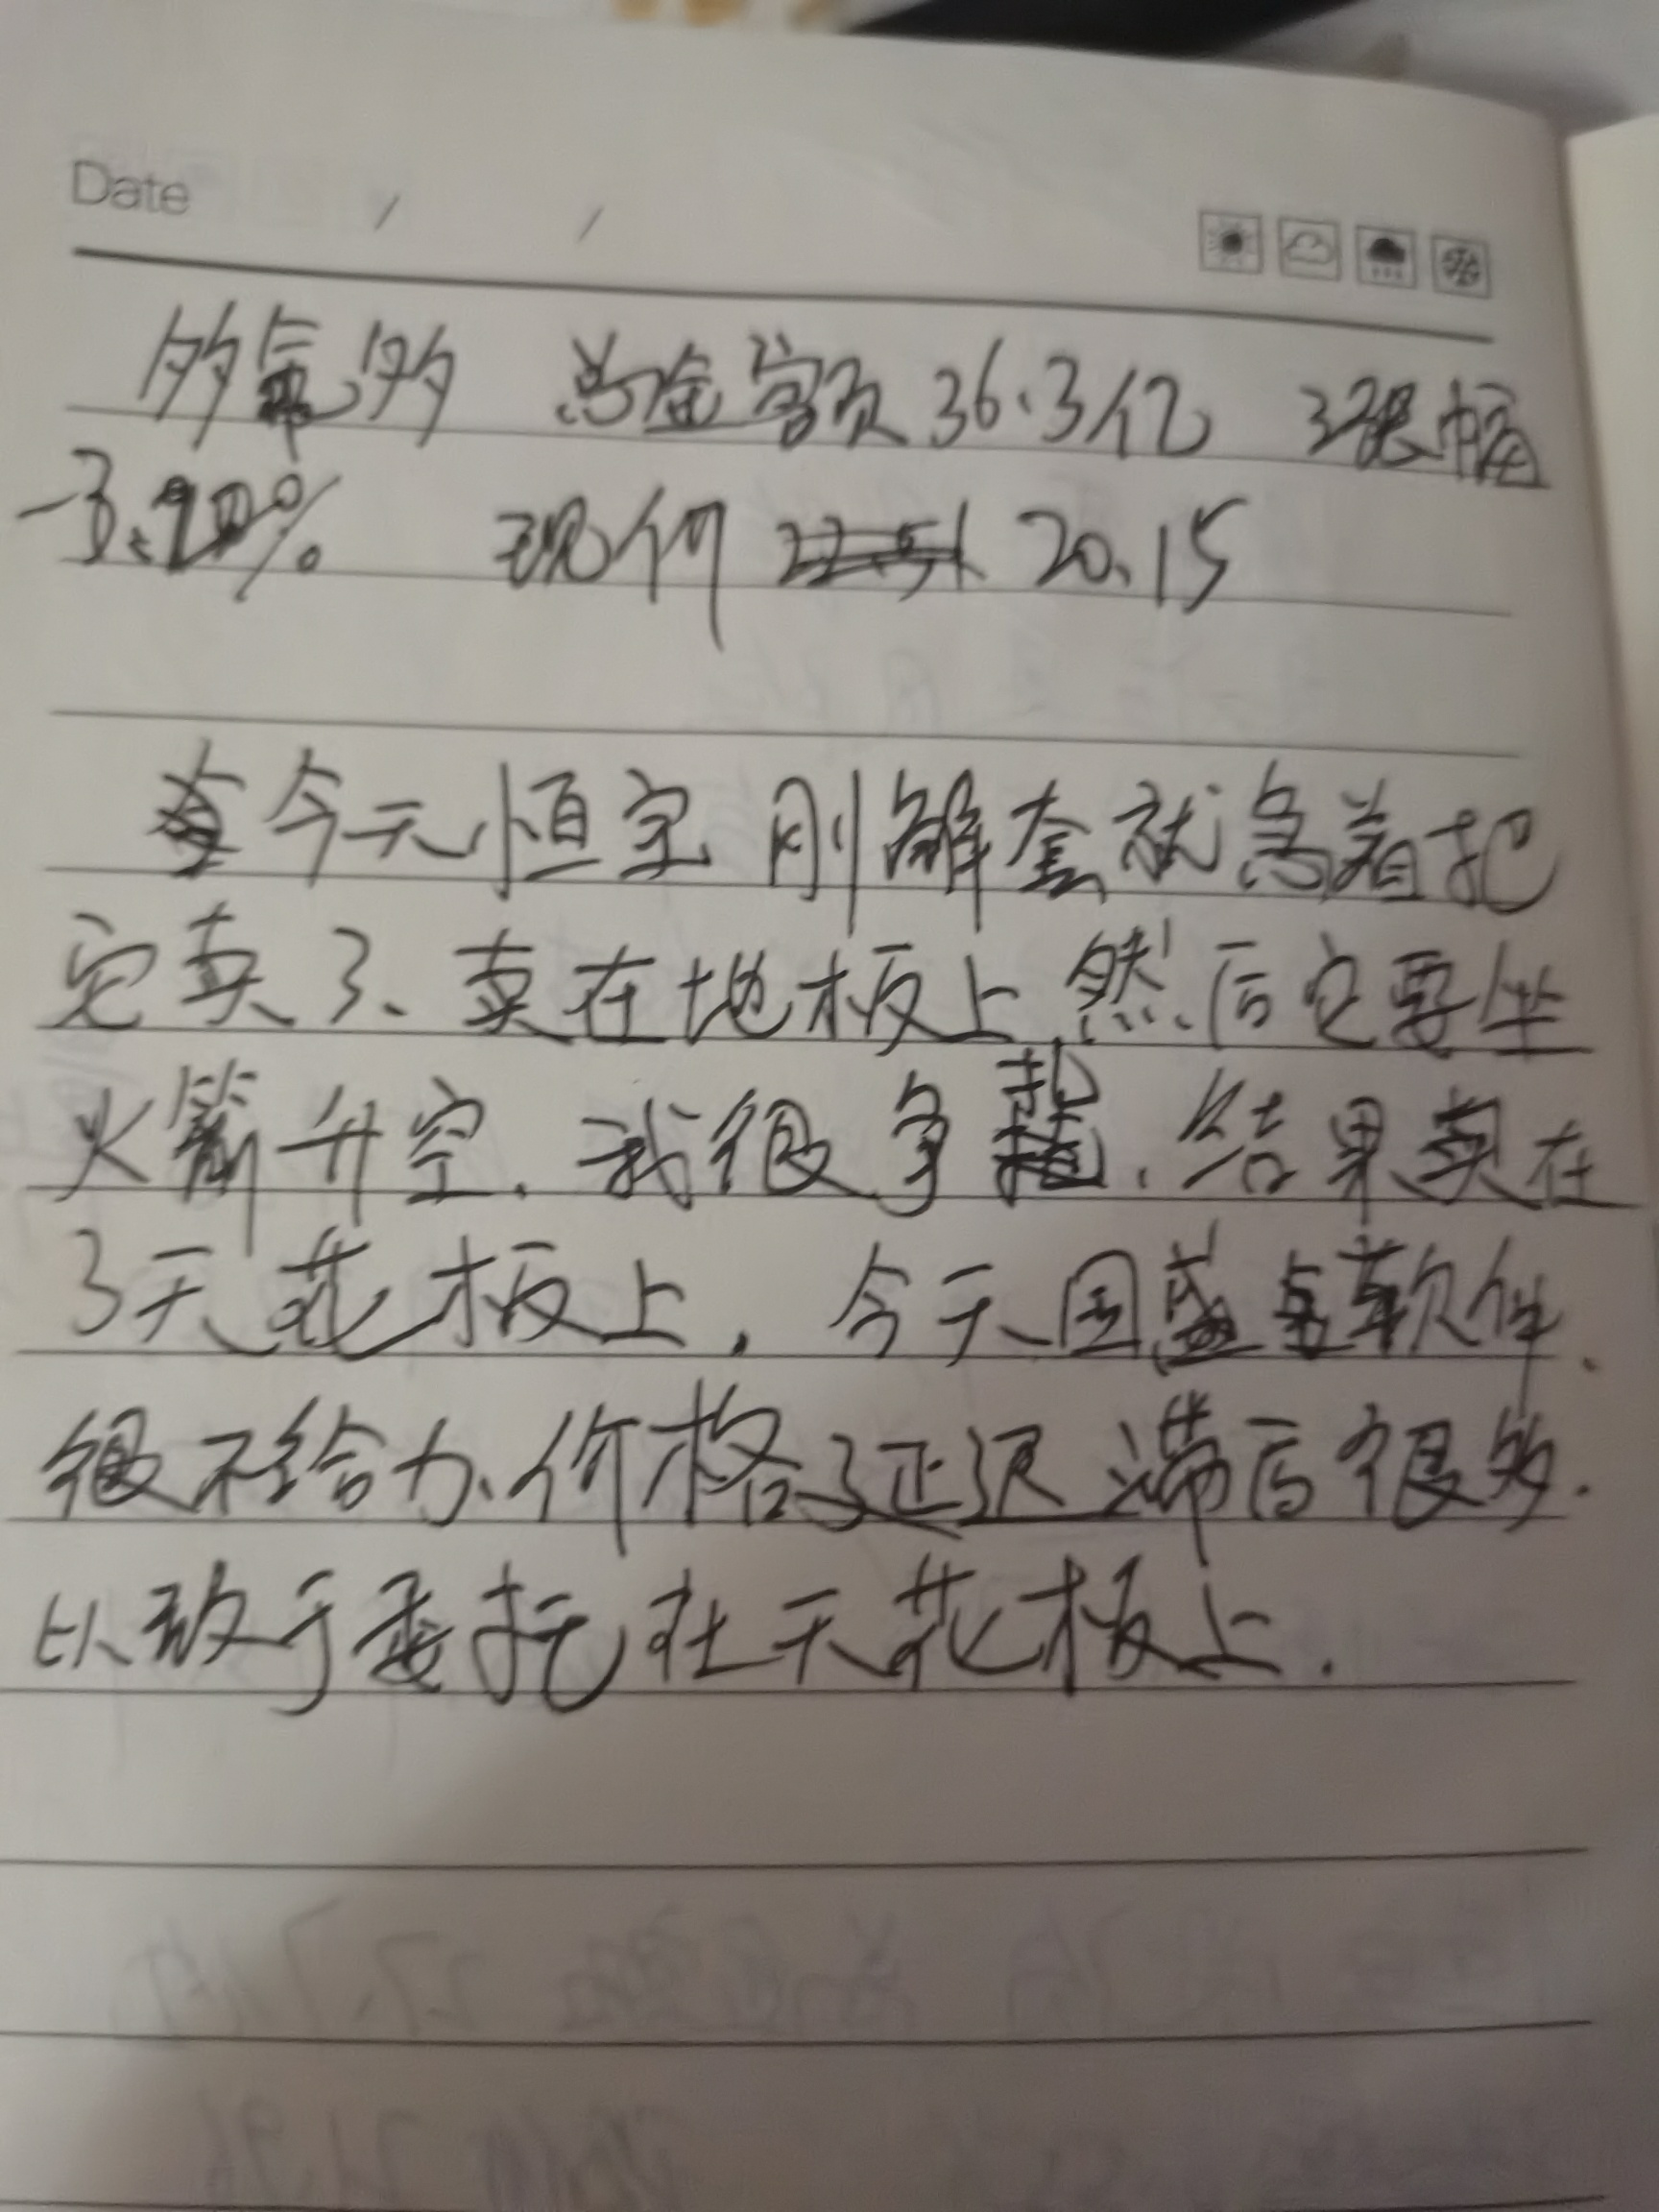 Date / /
多氟多 总金额 36.3亿 涨幅
-3.20% 现价 20.15
今天恒宝刚解套就急着把
它卖了、卖在地板上,然后它要坐
火箭升空.我很争扎.结果卖在
了天花板上.今天国盛软件、
很不给力、价格延迟滞后很多.
以致于委托在天花板上.